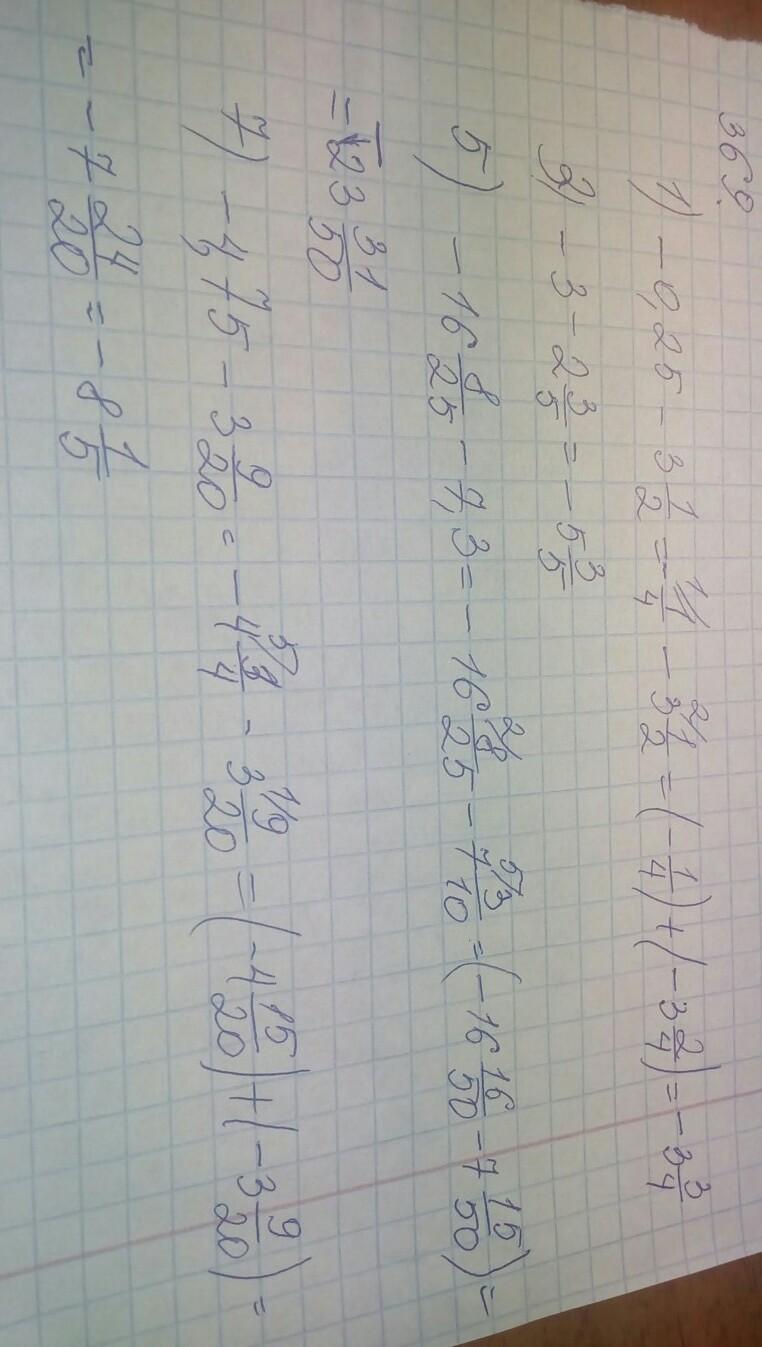 369.
1) - 0,25 - 3 1/2 = - 1/4 - 3 1/2 = (- 1/4) + (- 3 2/4) = - 3 3/4
3) - 3 - 2 3/5 = - 5 3/5
5) - 16 8/25 - 7,3 = - 16 8/25 - 7 3/10 = (- 16 16/50 - 7 15/50) =
= - 23 31/50
7) - 4,75 - 3 9/20 = - 4 3/4 - 3 9/20 = (- 4 15/20) + (- 3 9/20) =
= - 7 24/20 = - 8 1/5